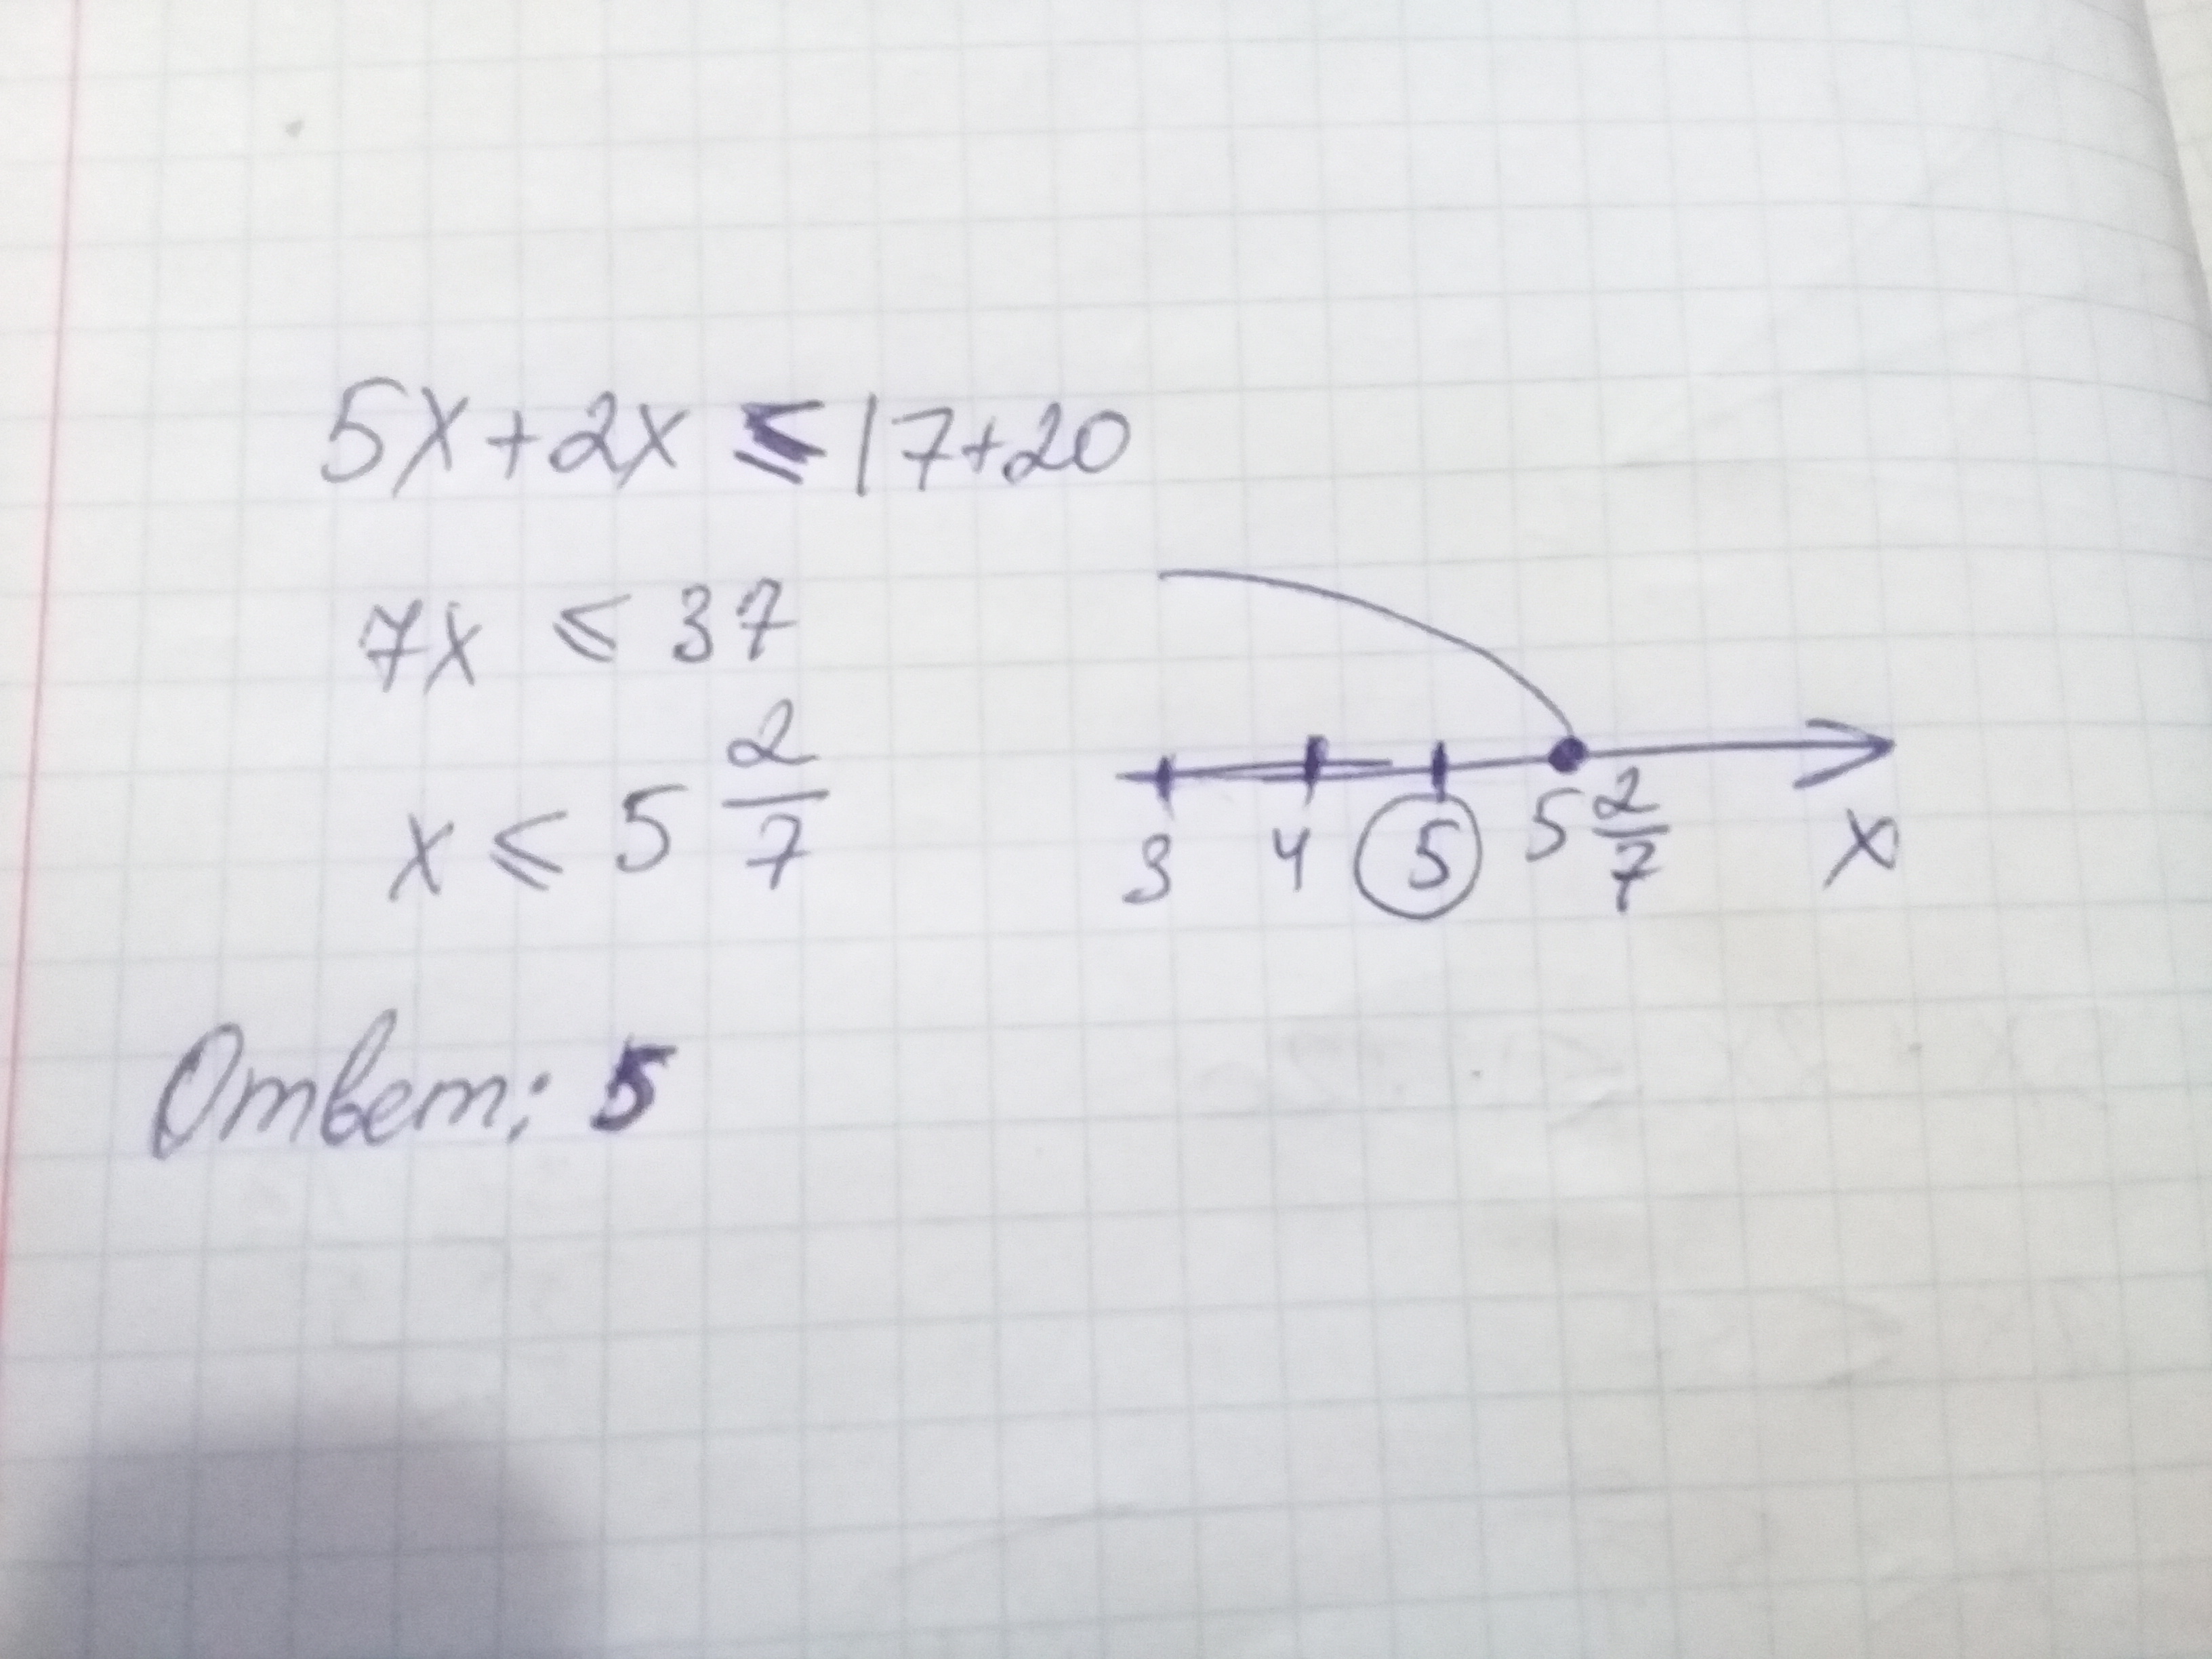 5x+2x ≤ 17+20
7x ≤ 37
x ≤ 5 2/7
3 4 5 5 2/7 x
Ответ: 5